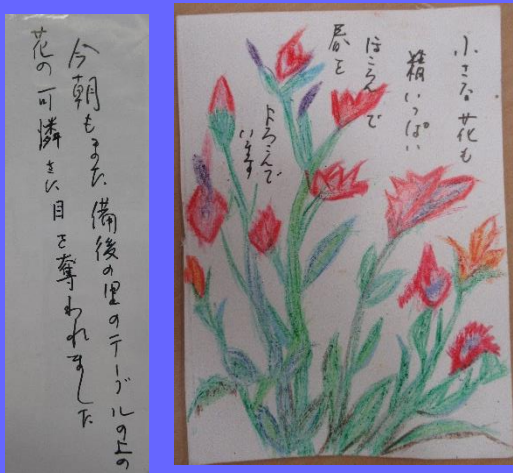 今朝もまた備後の里のテーブルの上の
花の可憐さに目を奪われました
小さな花も
精いっぱい
ほころんで
春を
よろこんで
います